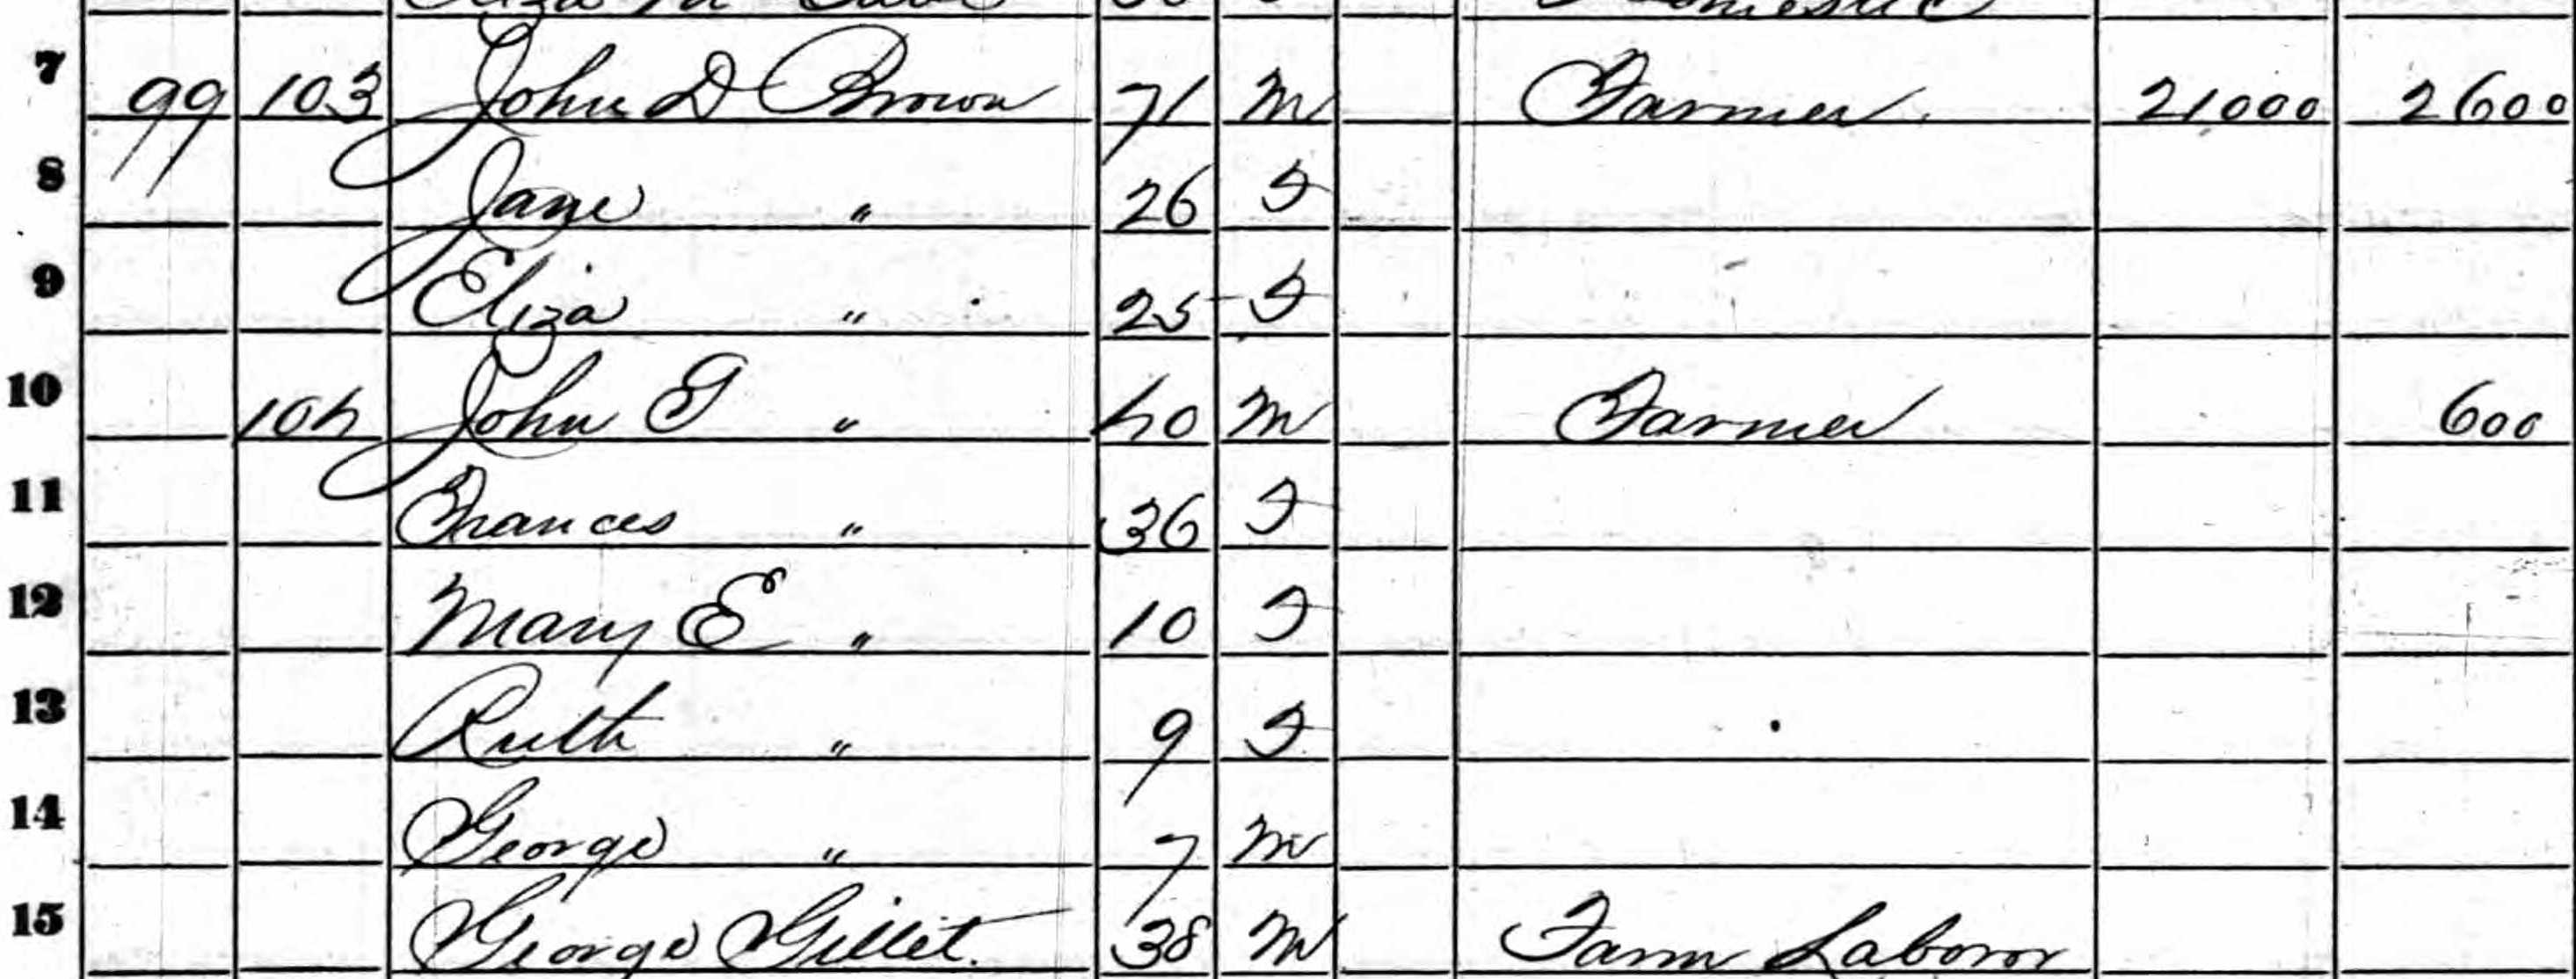 7 99 103 John D Brown 71 M Farmer 21000 2600
8 Jane " 26 F
9 Eliza " 25 F
10 104 John G " 40 M Farmer 600
11 Frances " 36 F
12 Mary E " 10 F
13 Ruth " 9 F
14 George " 7 M
15 George Gillet. 38 M Farm Laboror